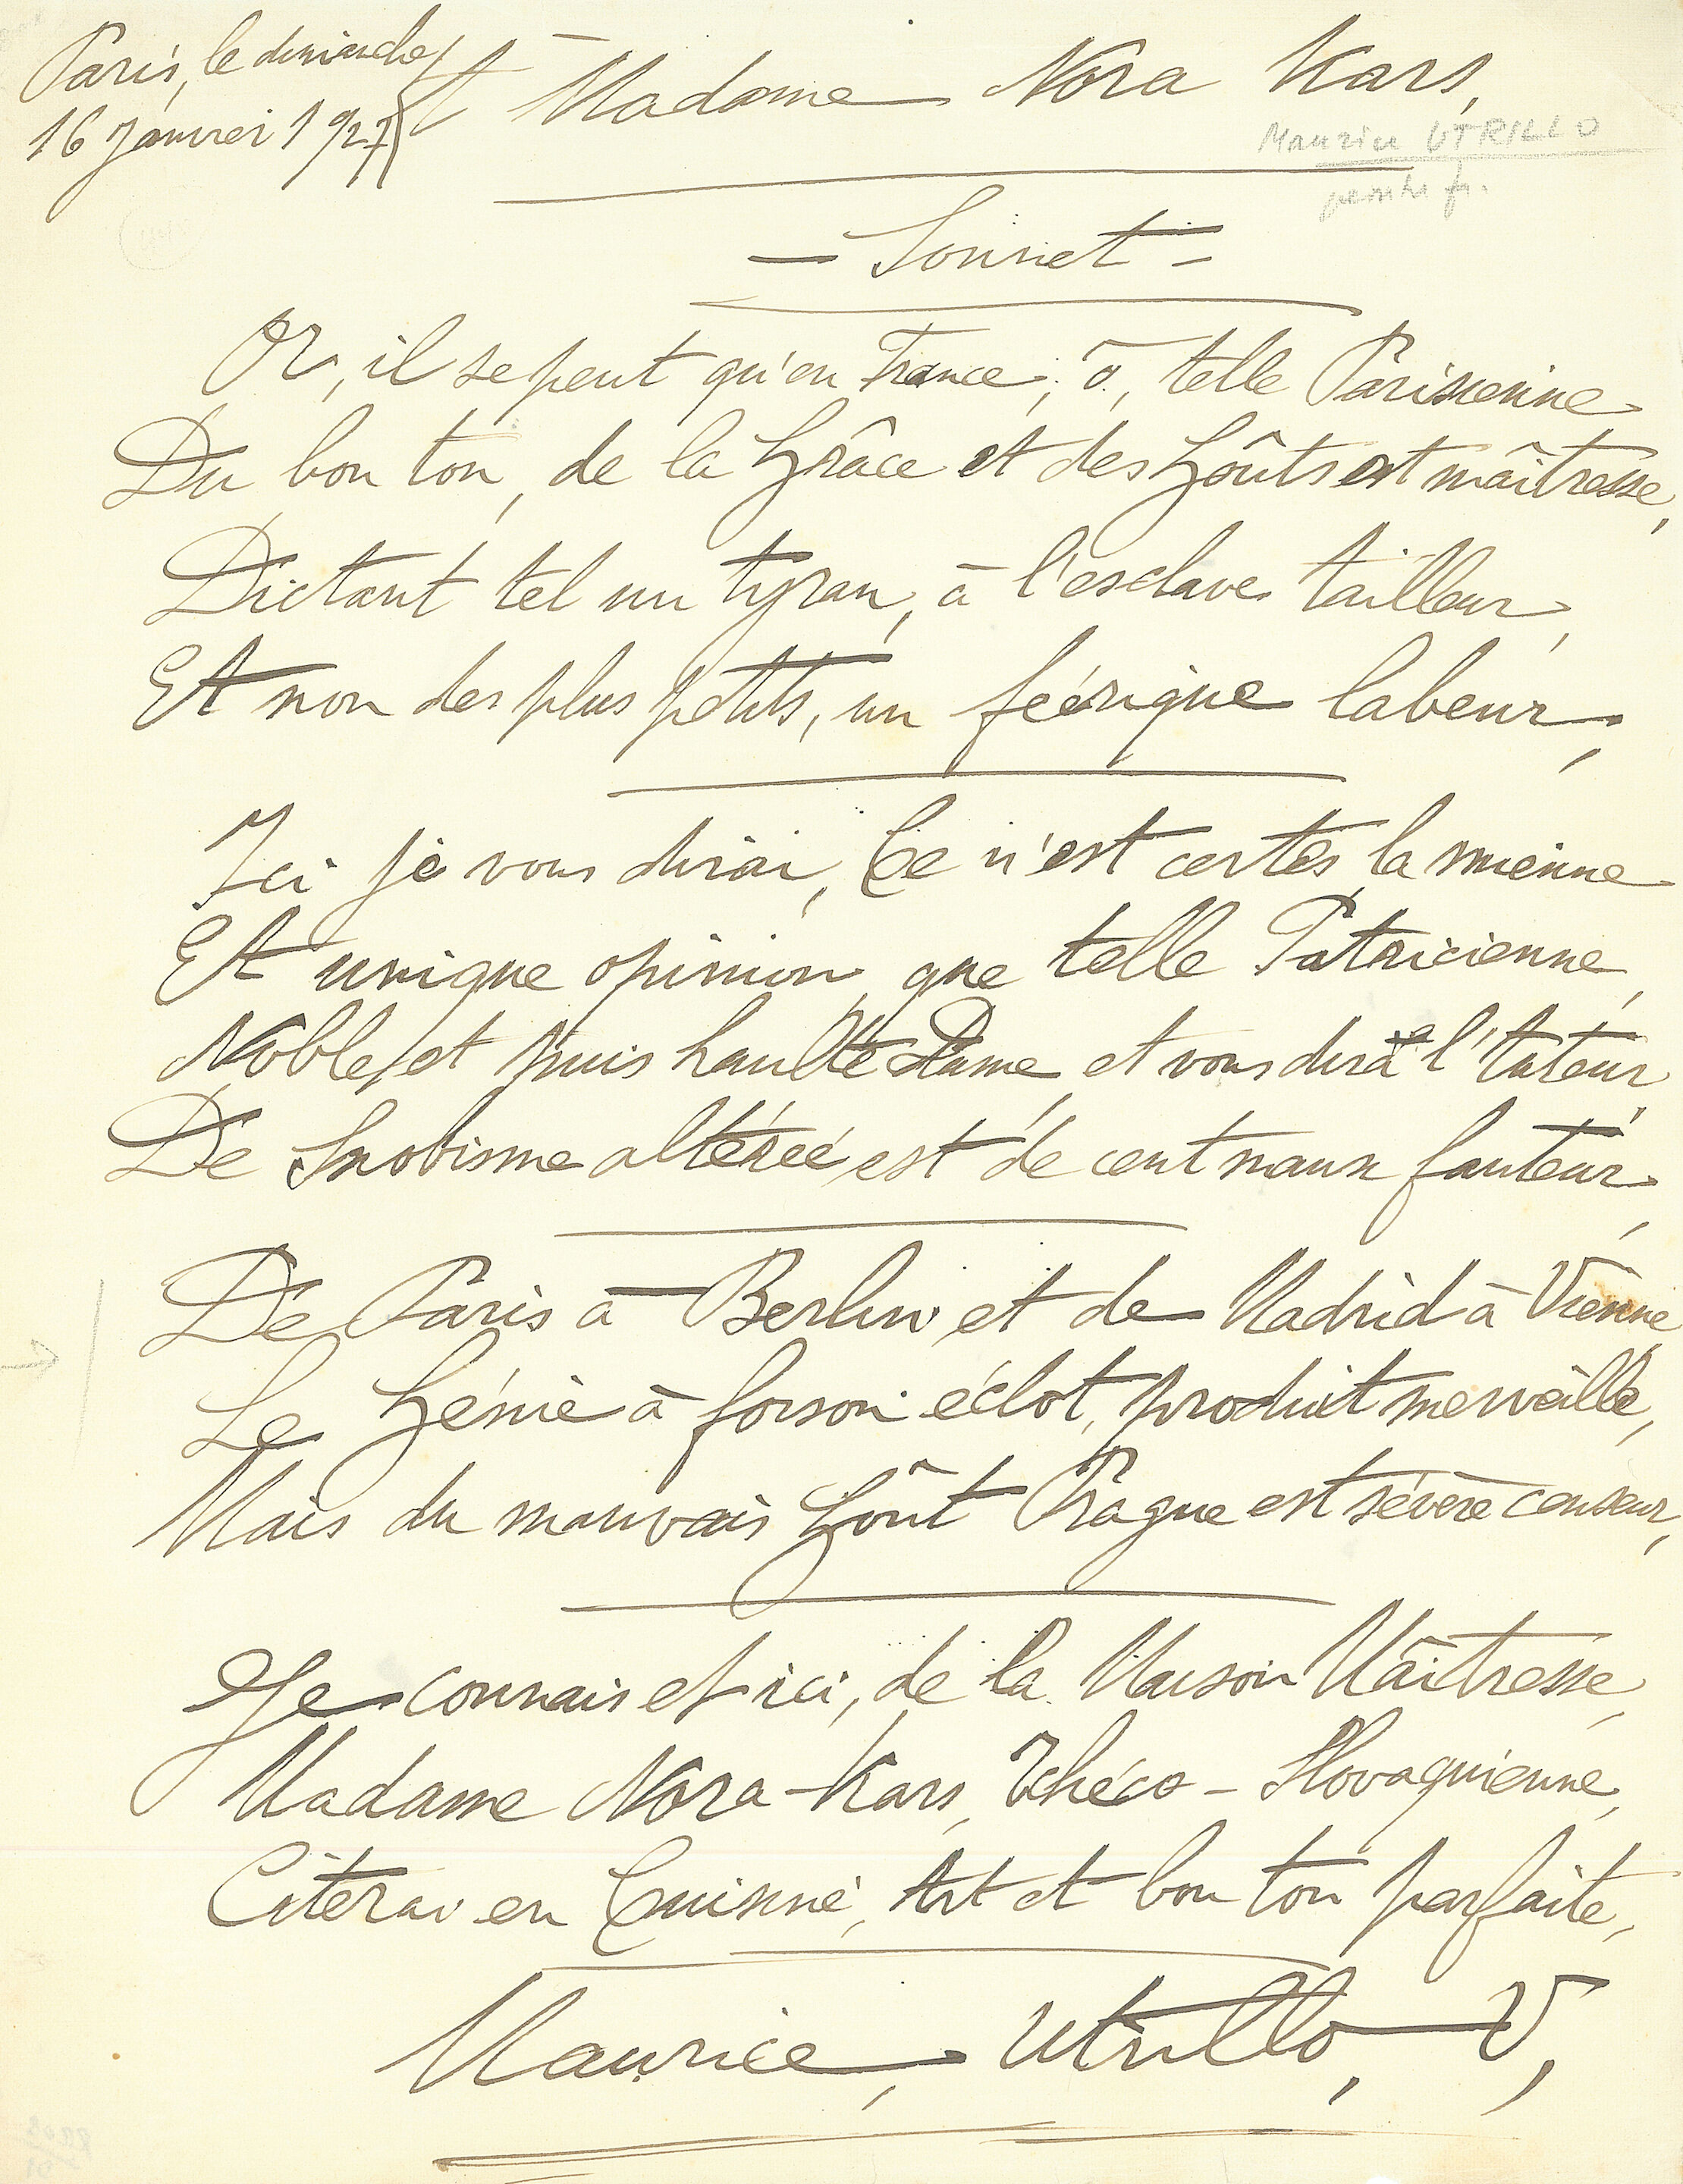 Paris, le dimanche
16 Janvier 1927
À Madame Nora Kars,
Maurice UTRILLO
peintre fr.
— Sonnet —
Or, il se peut qu'en France, ô, telle Parisienne
Du bon ton, de la Grâce et des Goûts est maîtresse,
Dictant tel un tyran, à l'esclave tailleur,
Et non des plus petits, un féérique labeur,
Ici je vous dirai, Ce n'est certes, la mienne
Et unique opinion, que telle Patricienne,
Noble, et puis haulte Dame, et vous dira l'Auteur,
De Snobisme altérée est de cent maux fauteur,
De Paris à Berlin, et de Madrid à Vienne,
Le Génie à foison éclot, produit merveille,
Mais du mauvais Goût Prague est sévère censeur,
Je connais et ici, de la Maison Maîtresse,
Madame Nora-Kars, Tchéco-Slovaquienne,
Citerai en Cuisine, Art et bon ton parfaite,
Maurice, Utrillo, V,